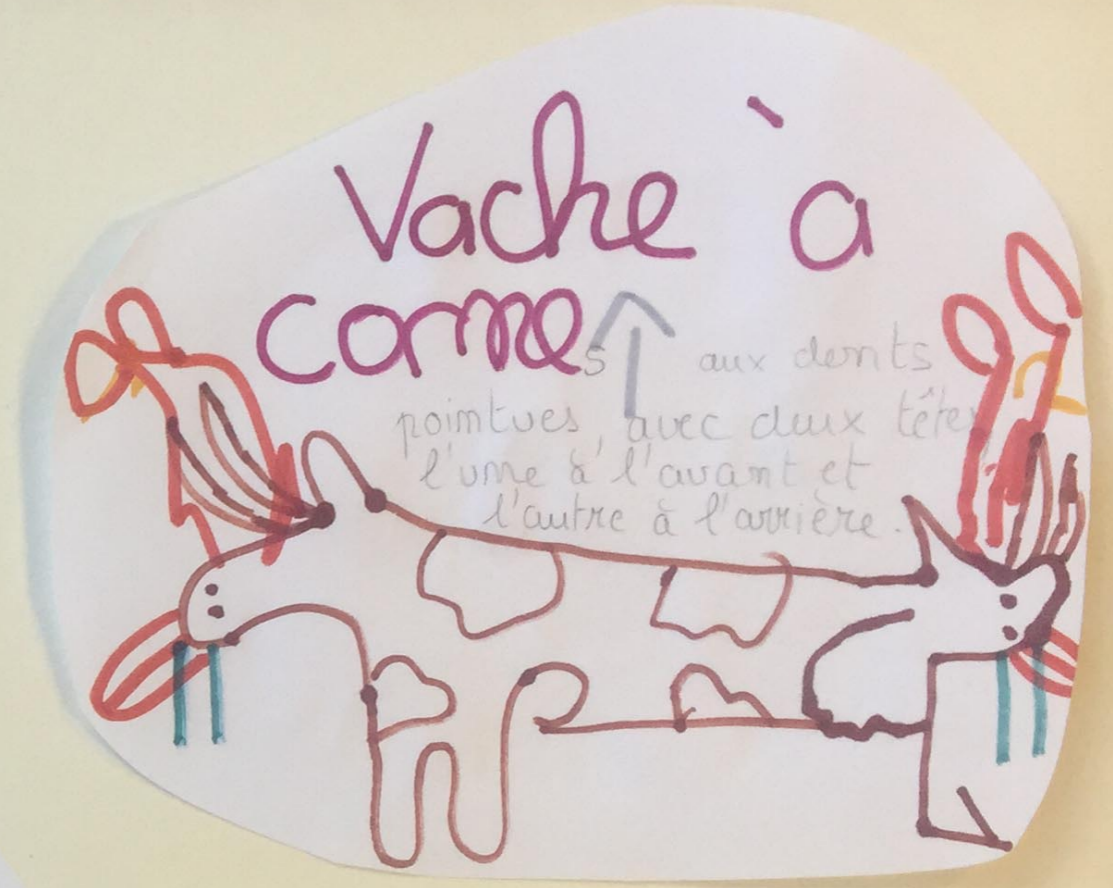 Vache à
cornes aux dents
pointues, avec deux têtes
l'une à l'avant et
l'autre à l'arrière.